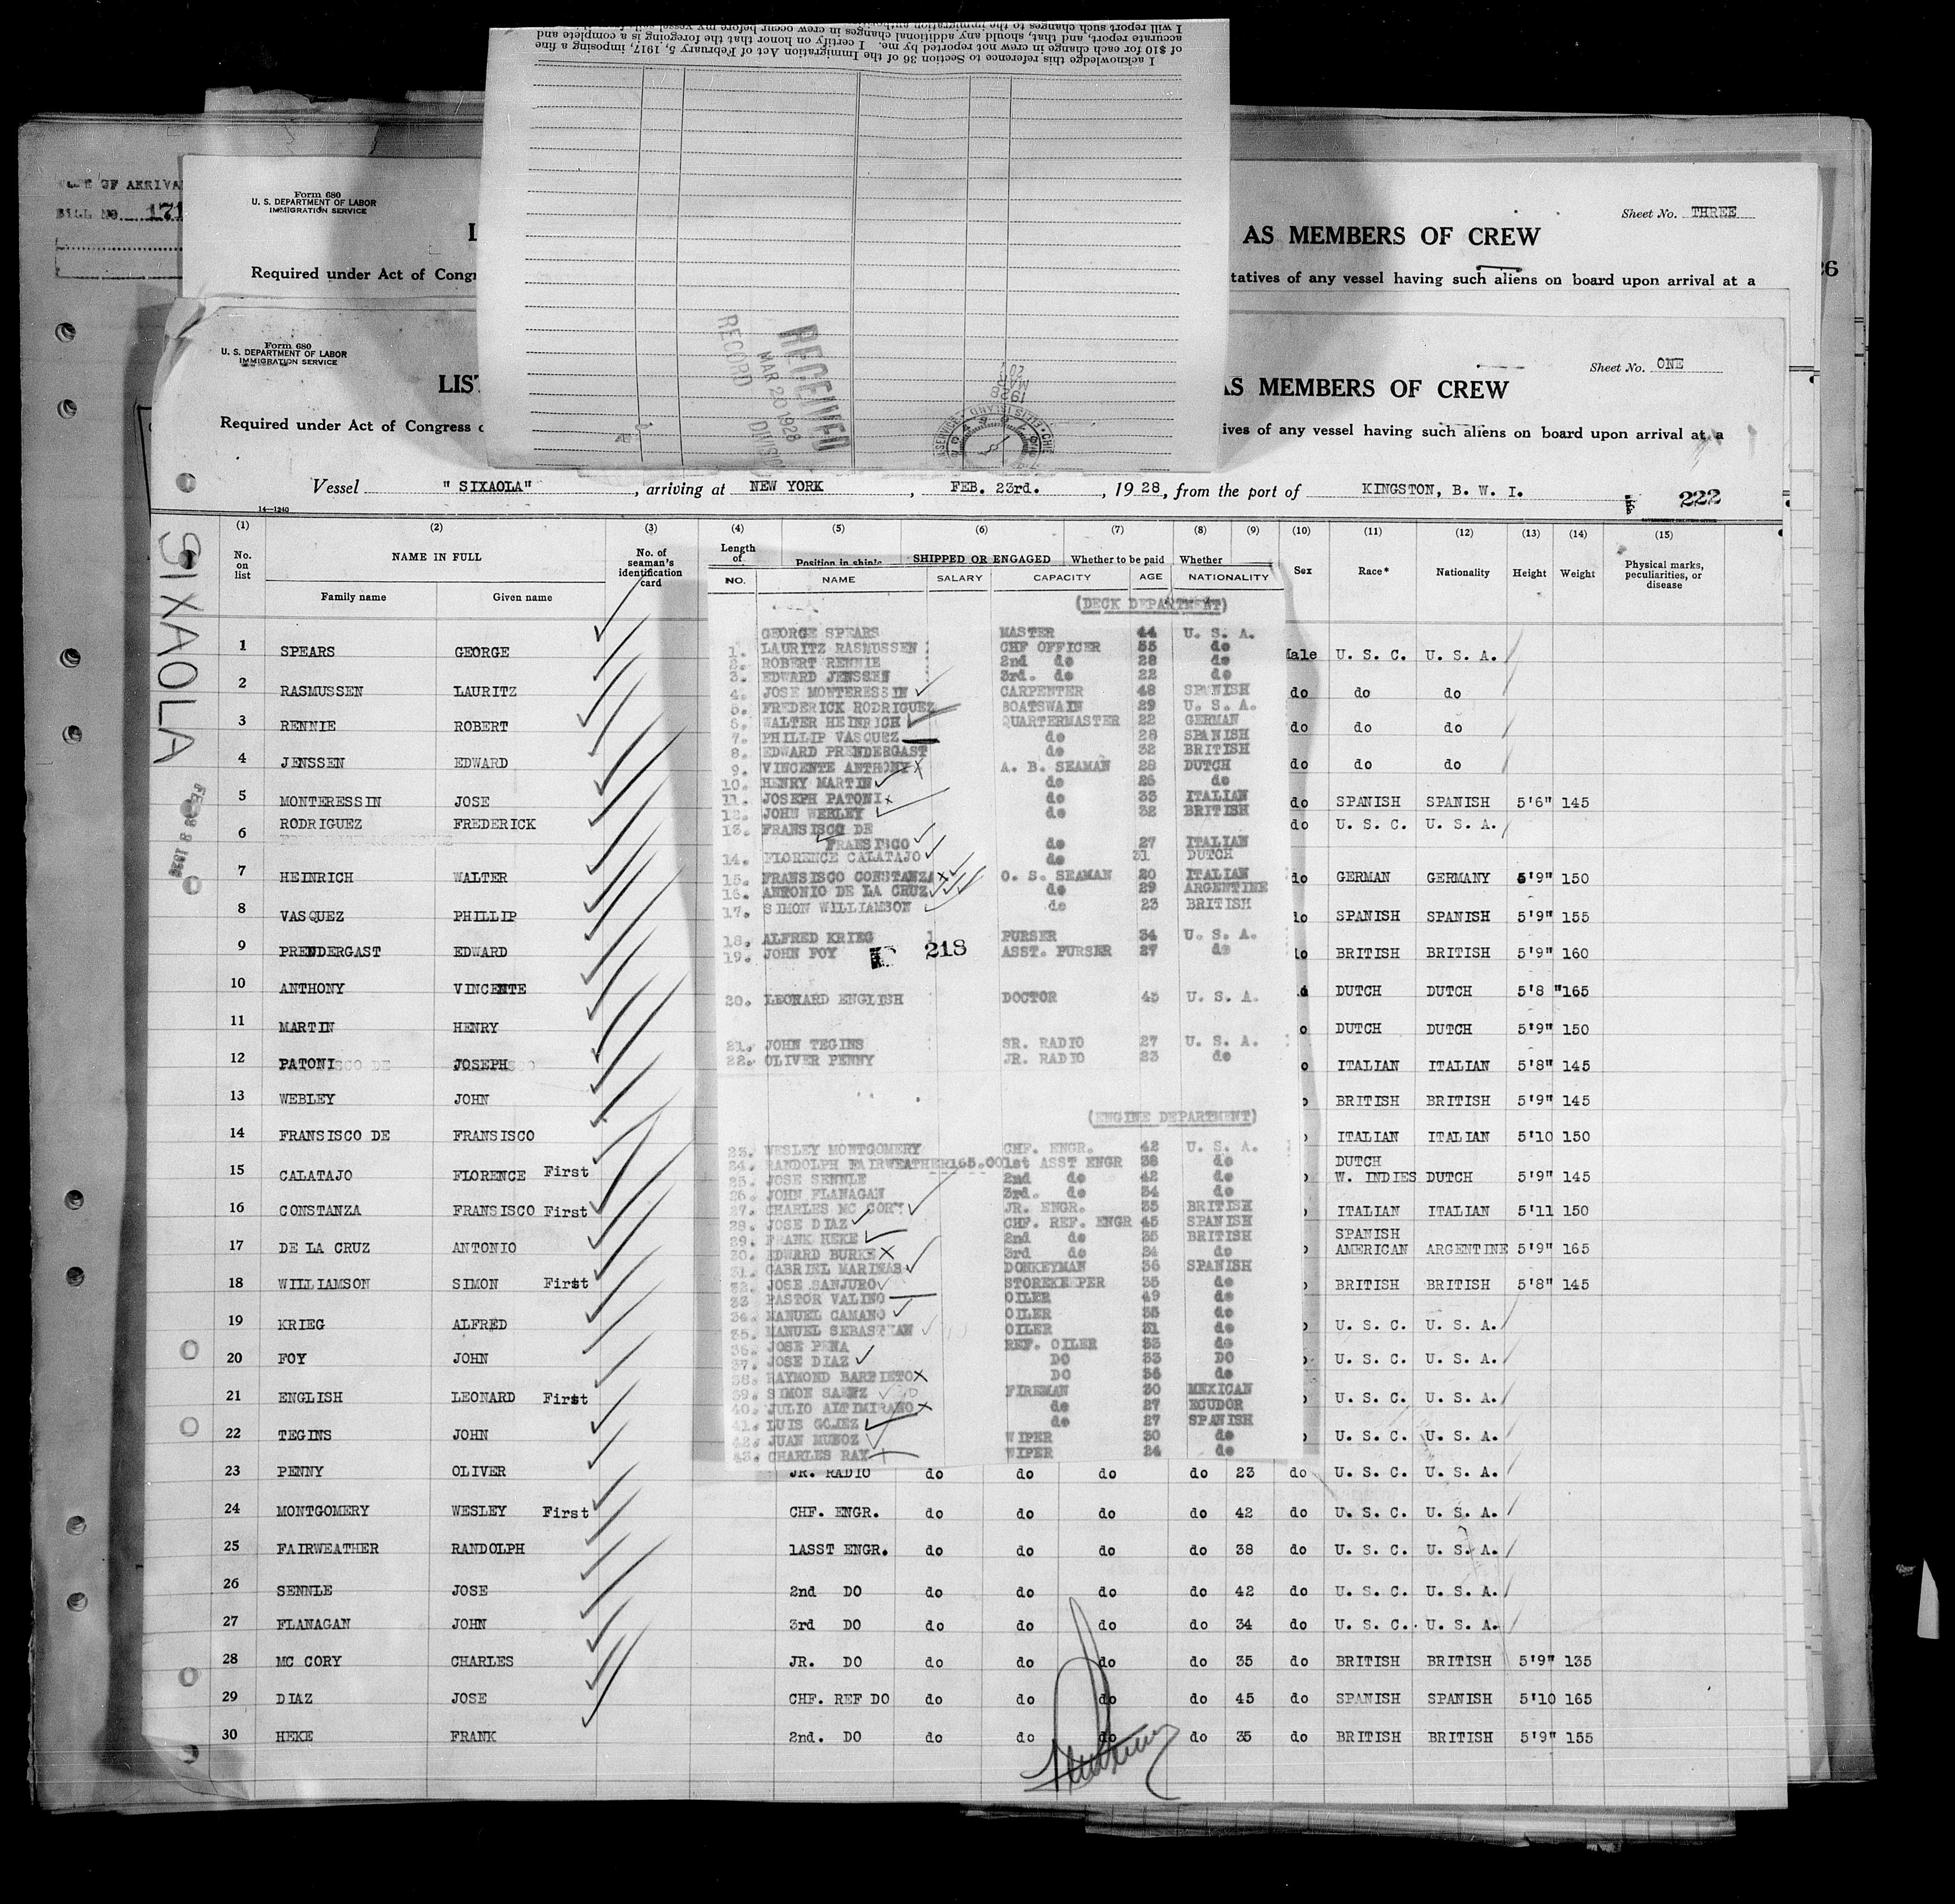 I acknowledge this reference to Section 36 of the Immigration Act of February 5, 1917, imposing a fine
of $10 for each change in crew not reported by me. I certify on honor that the foregoing is a complete and
accurate report, and that, should any additional changes in crew occur before my vessel
I will report such changes to the immigration
RECEIVED
MAR 20 1928
RECORD DIVISION
1928
MAR
20
BILL NO. 171
Form 680
U. S. DEPARTMENT OF LABOR
IMMIGRATION SERVICE
Sheet No. THREE
AS MEMBERS OF CREW
Required under Act of Congr
tatives of any vessel having such aliens on board upon arrival at a
Form 680
U. S. DEPARTMENT OF LABOR
IMMIGRATION SERVICE
Sheet No. ONE
LIST
AS MEMBERS OF CREW
Required under Act of Congress
ives of any vessel having such aliens on board upon arrival at a
Vessel "SIXAOLA", arriving at NEW YORK, FEB. 23rd., 1928, from the port of KINGSTON, B. W. I.
222
14—1240
SIXAOLA
(1) (2) (3) (4) (5) (6) (7) (8) (9) (10) (11) (12) (13) (14) (15)
No. on list NAME IN FULL No. of seaman's identification card Length of Position in ship's SHIPPED OR ENGAGED Whether to be paid Whether Sex Race* Nationality Height Weight Physical marks, peculiarities, or disease
Family name Given name
NO. NAME SALARY CAPACITY AGE NATIONALITY
(DECK DEPARTMENT)
GEORGE SPEARS MASTER 44 U. S. A.
1. LAURITZ RASMUSSEN CHF OFFICER 35 do
2. ROBERT RENNIE 2nd do 28 do
3. EDWARD JENSSEN 3rd. do 22 do
4. JOSE MONTERESSIN CARPENTER 48 SPANISH
5. FREDERICK RODRIGUEZ BOATSWAIN 29 U. S. A.
6. WALTER HEINRICH QUARTERMASTER 22 GERMAN
7. PHILLIP VASQUEZ do 28 SPANISH
8. EDWARD PRENDERGAST do 32 BRITISH
9. VINCENTE ANTHONY A. B. SEAMAN 28 DUTCH
10. HENRY MARTIN do 26 do
11. JOSEPH PATONI do 33 ITALIAN
12. JOHN WEBLEY do 32 BRITISH
13. FRANSISCO DE
FRANSISCO do 27 ITALIAN
14. FLORENCE CALATAJO do 31 DUTCH
15. FRANSISCO CONSTANZA O. S. SEAMAN 20 ITALIAN
16. ANTONIO DE LA CRUZ do 29 ARGENTINE
17. SIMON WILLIAMSON do 23 BRITISH
18. ALFRED KRIEG PURSER 34 U. S. A.
19. JOHN FOY 218 ASST. PURSER 27 do
20. LEONARD ENGLISH DOCTOR 45 U. S. A.
21. JOHN TEGINS SR. RADIO 27 U. S. A.
22. OLIVER PENNY JR. RADIO 23 do
(ENGINE DEPARTMENT)
23. WESLEY MONTGOMERY CHF. ENGR. 42 U. S. A.
24. RANDOLPH FAIRWEATHER 165.00 1st ASST ENGR 38 do
25. JOSE SENNLE 2nd do 42 do
26. JOHN FLANAGAN 3rd. do 34 do
27. CHARLES MC CORY JR. ENGR. 35 BRITISH
28. JOSE DIAZ CHF. REF. ENGR 45 SPANISH
29. FRANK HEKE 2nd do 35 BRITISH
30. EDWARD BURKE 3rd do 24 do
31. GABRIEL MARINAS DONKEYMAN 36 SPANISH
32. JOSE SANJURO STOREKEEPER 35 do
33 PASTOR VALINO OILER 49 do
34. MANUEL CAMANO OILER 35 do
35. MANUEL SEBASTIAN OILER 31 do
36. JOSE PENA REF. OILER 33 do
37. JOSE DIAZ DO 33 DO
38. RAYMOND BARRIETO DO 36 do
39. SIMON SAENZ FIREMAN 30 MEXICAN
40. JULIO ALTIMIRANO do 27 ECUDOR
41. LUIS GOMEZ do 27 SPANISH
42. JUAN MUNOZ WIPER 30 do
43. CHARLES RAY WIPER 24 do
1 SPEARS GEORGE Male U. S. C. U. S. A.
2 RASMUSSEN LAURITZ do do do
3 RENNIE ROBERT do do do
4 JENSSEN EDWARD do do do
5 MONTERESSIN JOSE do SPANISH SPANISH 5'6" 145
6 RODRIGUEZ FREDERICK do U. S. C. U. S. A.
7 HEINRICH WALTER do GERMAN GERMANY 5'9" 150
8 VASQUEZ PHILLIP do SPANISH SPANISH 5'9" 155
9 PRENDERGAST EDWARD do BRITISH BRITISH 5'9" 160
10 ANTHONY VINCENTE DUTCH DUTCH 5'8" 165
11 MARTIN HENRY DUTCH DUTCH 5'9" 150
12 PATONI JOSEPH ITALIAN ITALIAN 5'8" 145
13 WEBLEY JOHN BRITISH BRITISH 5'9" 145
14 FRANSISCO DE FRANSISCO ITALIAN ITALIAN 5'10 150
15 CALATAJO FLORENCE First DUTCH W. INDIES DUTCH 5'9" 145
16 CONSTANZA FRANSISCO First ITALIAN ITALIAN 5'11 150
17 DE LA CRUZ ANTONIO SPANISH AMERICAN ARGENTINE 5'9" 165
18 WILLIAMSON SIMON First BRITISH BRITISH 5'8" 145
19 KRIEG ALFRED U. S. C. U. S. A.
20 FOY JOHN U. S. C. U. S. A.
21 ENGLISH LEONARD First U. S. C. U. S. A.
22 TEGINS JOHN U. S. C. U. S. A.
23 PENNY OLIVER JR. RADIO do do do do 23 do U. S. C. U. S. A.
24 MONTGOMERY WESLEY First CHF. ENGR. do do do do 42 do U. S. C. U. S. A.
25 FAIRWEATHER RANDOLPH 1ASST ENGR. do do do do 38 do U. S. C. U. S. A.
26 SENNLE JOSE 2nd DO do do do do 42 do U. S. C. U. S. A.
27 FLANAGAN JOHN 3rd DO do do do do 34 do U. S. C. U. S. A.
28 MC CORY CHARLES JR. DO do do do do 35 do BRITISH BRITISH 5'9" 135
29 DIAZ JOSE CHF. REF DO do do do do 45 do SPANISH SPANISH 5'10 165
30 HEKE FRANK 2nd. DO do do do do 35 do BRITISH BRITISH 5'9" 155